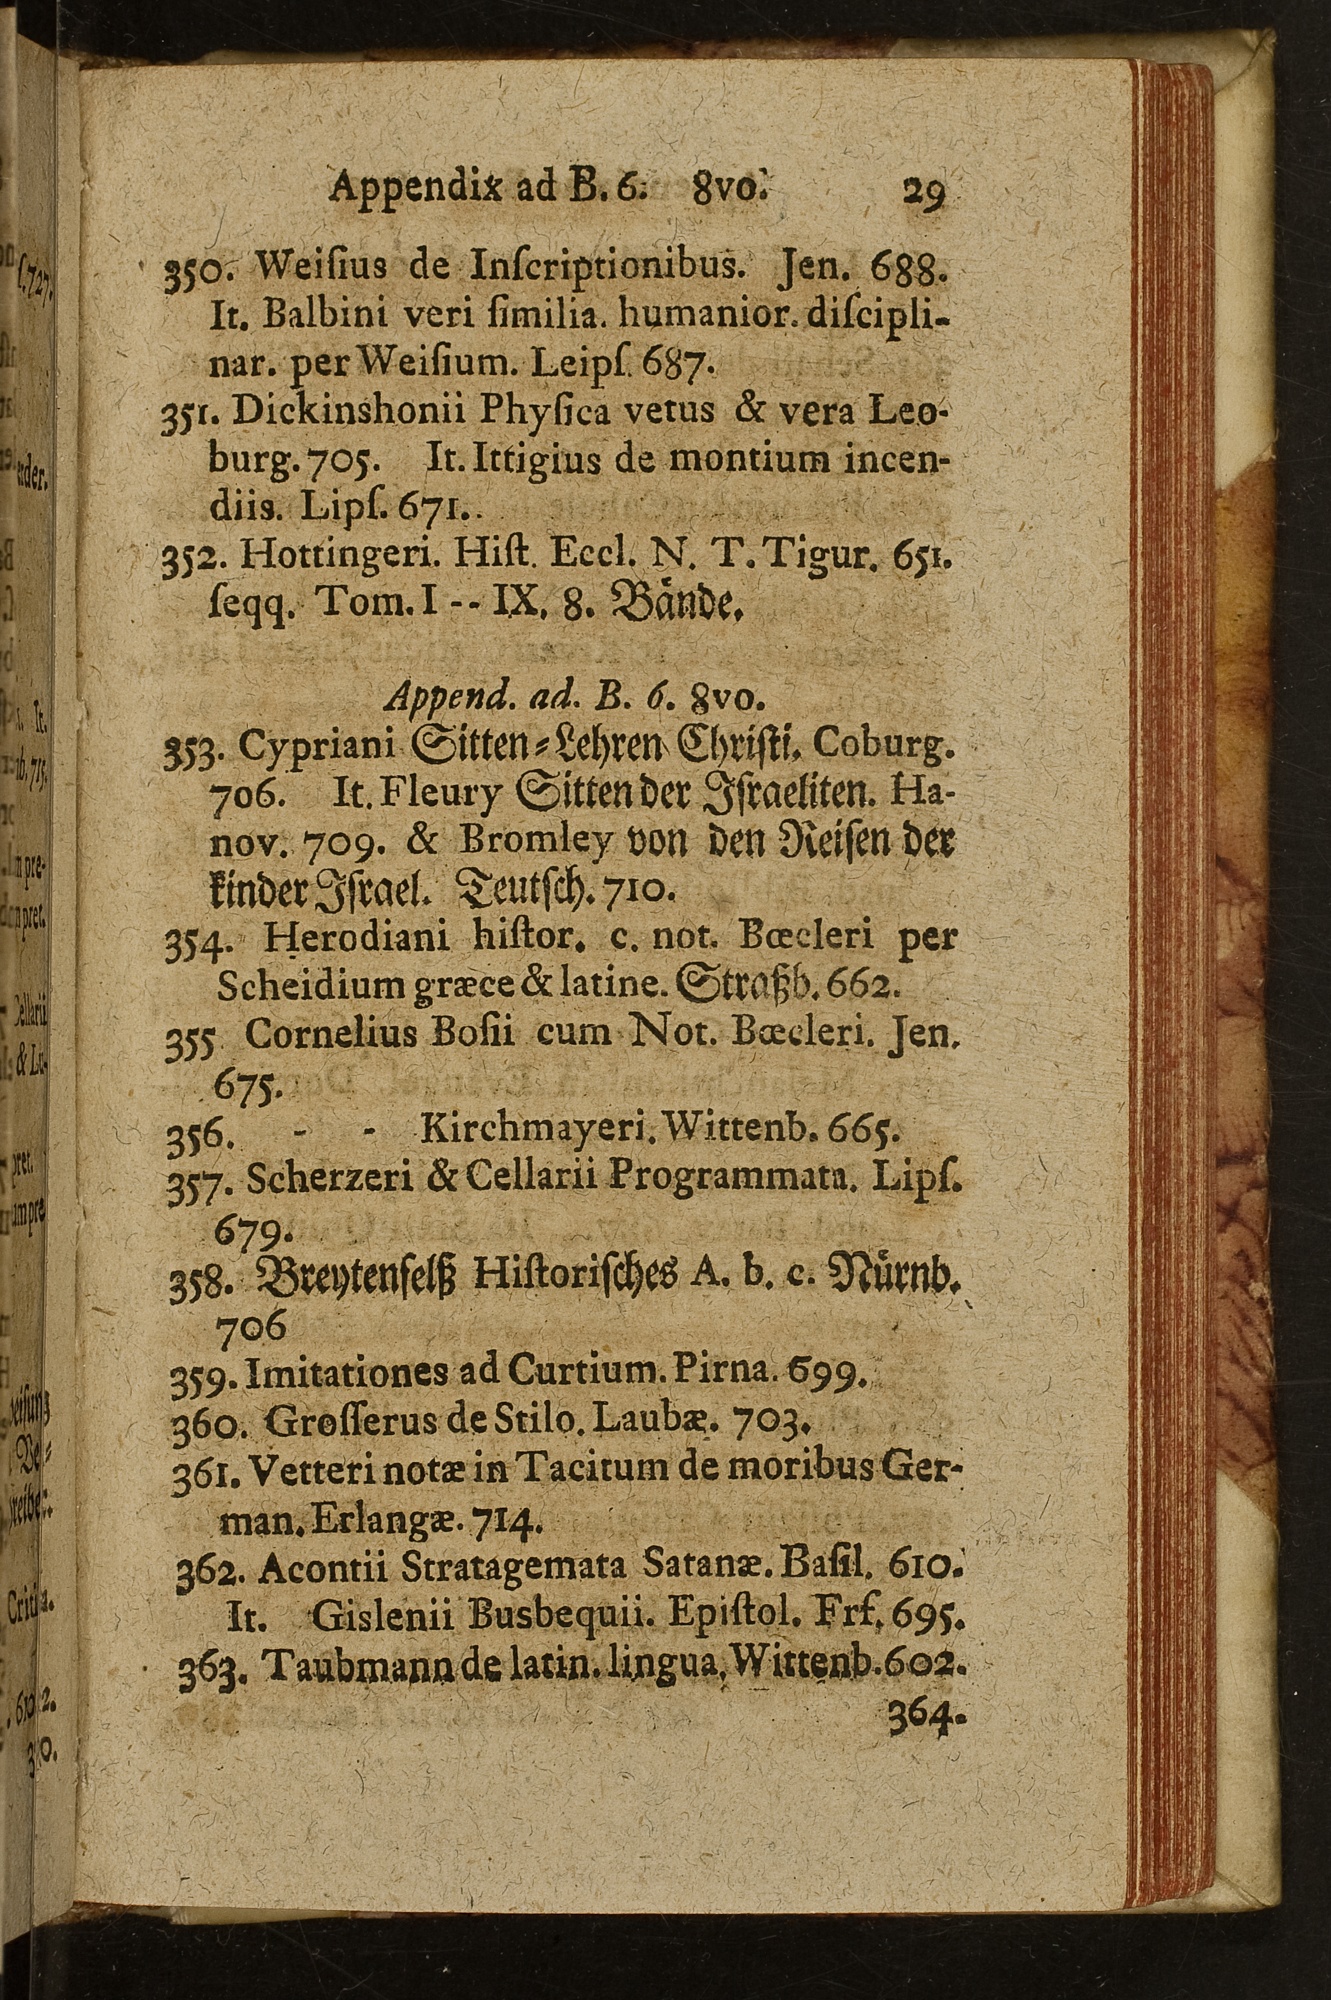 Appendix ad B. 6. 8vo. 29
350. Weiſius de Inſcriptionibus. Jen. 688.
It. Balbini veri ſimilia. humanior. diſcipli-
nar. per Weiſium. Leipſ. 687.
351. Dickinshonii Phyſica vetus & vera Leo-
burg. 705. It. Ittigius de montium incen-
diis. Lipſ. 671.
352. Hottingeri. Hiſt. Eccl. N. T. Tigur. 651.
ſeqq. Tom. I -- IX. 8. Bände.
Append. ad. B. 6. 8vo.
353. Cypriani Sitten-Lehren Chriſti. Coburg.
706. It. Fleury Sitten der Iſraeliten. Ha-
nov. 709. & Bromley von den Reiſen der
kinder Iſrael. Teutſch. 710.
354. Herodiani hiſtor. c. not. Bœcleri per
Scheidium græce & latine. Straßb. 662.
355 Cornelius Boſii cum Not. Bœcleri. Jen.
675.
356. - - Kirchmayeri. Wittenb. 665.
357. Scherzeri & Cellarii Programmata. Lipſ.
679.
358. Breytenfelß Hiſtoriſches A. b. c. Nürnb.
706
359. Imitationes ad Curtium. Pirna. 699.
360. Groſſerus de Stilo. Laubæ. 703.
361. Vetteri notæ in Tacitum de moribus Ger-
man. Erlangæ. 714.
362. Acontii Stratagemata Satanæ. Baſil. 610.
It. Gislenii Busbequii. Epiſtol. Frf. 695.
363. Taubmann de latin. lingua, Wittenb. 602.
364.